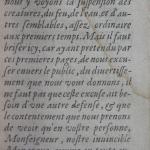 nous y voyons la suspension des
creatures, du feu, de l'eau, & d'au-
tres semblables, assez ordinaire
aux premiers temps. Mais il faut
briser icy, car ayant pretendu par
ces premieres pages, de nous excu-
ser enuers le public, du diuertisse-
ment que nous vous donnons, il
ne faut pas que cette excuse ait be-
soin d'vne autre defense, & que
le contentement que nous prenons
de veoir qu'en vostre personne,
Monseigneur, nostre